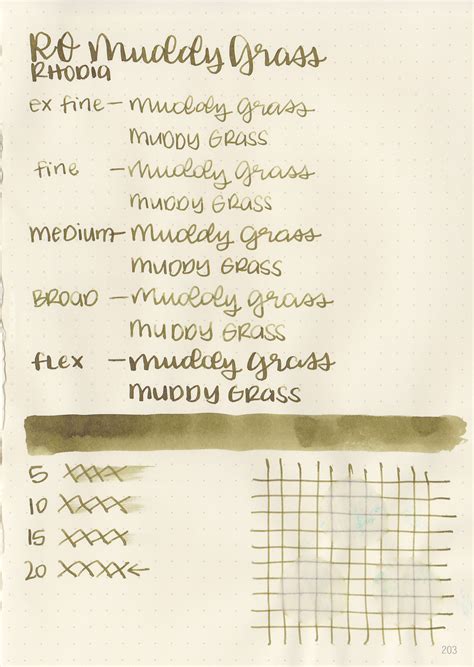 RO Muddy Grass
RHODIA
ex fine - Muddy Grass
MUDDY GRASS
fine - Muddy Grass
MUDDY GRASS
MEDIUM - Muddy Grass
MUDDY GRASS
BROAD - Muddy Grass
MUDDY GRASS
flex - Muddy Grass
MUDDY GRASS
5 XXXX
10 XXXX
15 XXXX
20 XXXX←
203